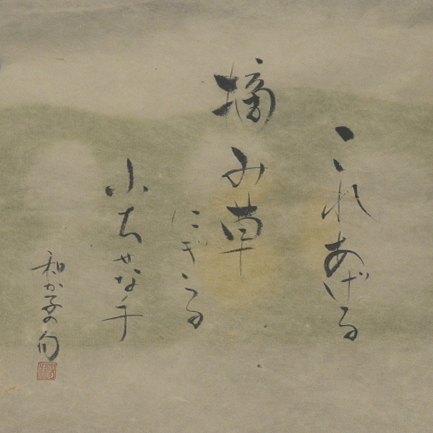 これあげる
摘み草
にぎる
小ちゃな手
和か子の句